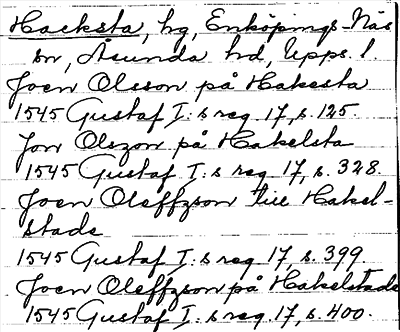 Hacksta, hg, Enköpings-Näs
sn, Åsunda hd, Upps. l.
Joen Olsson på Hakesta
1545 Gustaf I:s reg. 17, s. 125.
Jon Olszon på Hakelsta
1545 Gustaf I:s reg. 17, s. 328.
Joen Oleffzson tiil Hakel-
stade
1545 Gustaf I:s reg. 17, s. 399.
Joen Oleffzson på Hakelstade
1545 Gustaf I:s reg. 17, s. 400.